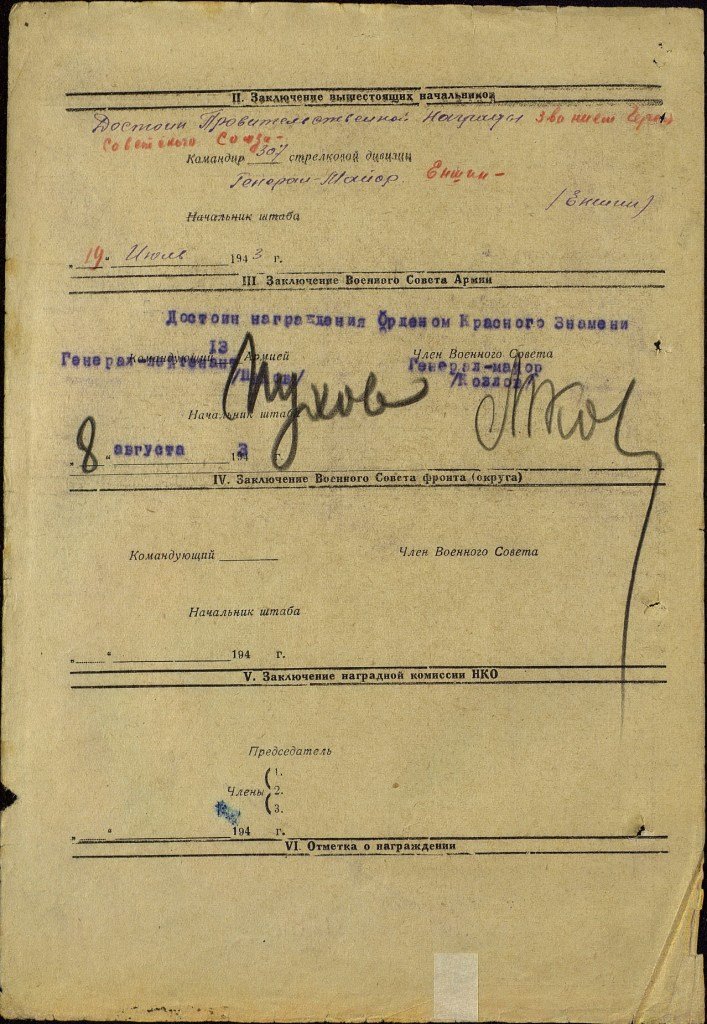 II. Заключение вышестоящих начальников
Достоин Правительственной Награды званием Героя
Советского Союза-
Командир 307 стрелковой дивизии
Генерал-Майор. Еншин-
(Еншин)
Начальник штаба
„19“ Июль 1943 г.
III. Заключение Военного Совета Армии
Достоин награждения Орденом Красного Знамени
Командующий 13 Армией Член Военного Совета
Генерал-лейтенант Генерал-майор
/Пухов/ /Козлов/
Пухов
Начальник штаба
„8“ августа 1943 г.
IV. Заключение Военного Совета фронта (округа)
Командующий Член Военного Совета
Начальник штаба
„ “ 194 г.
V. Заключение наградной комиссии НКО
Председатель
1.
Члены 2.
3.
„ “ 194 г.
VI. Отметка о награждении